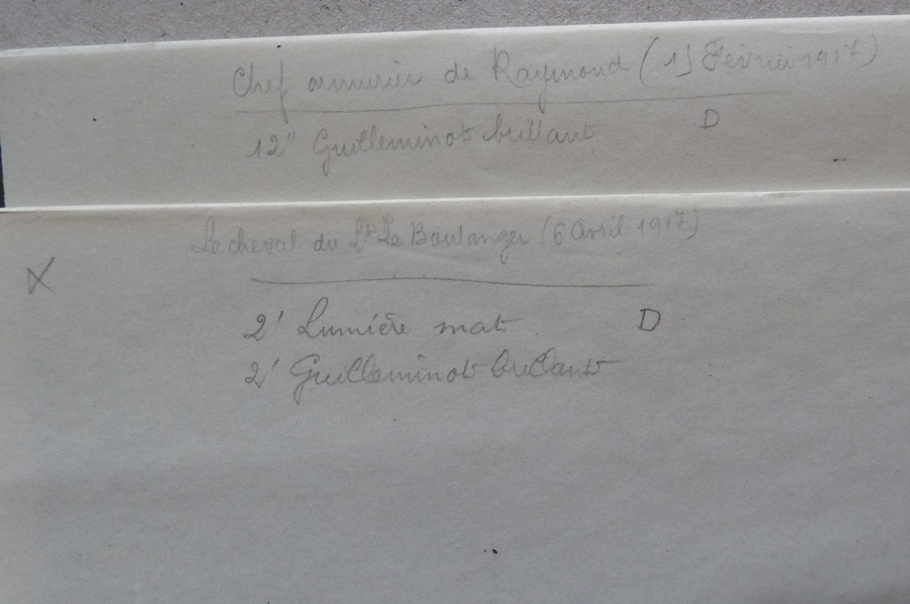 Chef armurier de Raymond (15 Février 1917)
12" Guilleminot brillant D
Le cheval du Lt Le Boulanger (6 Avril 1917)
X
2' Lumière mat D
2' Guilleminot brillant